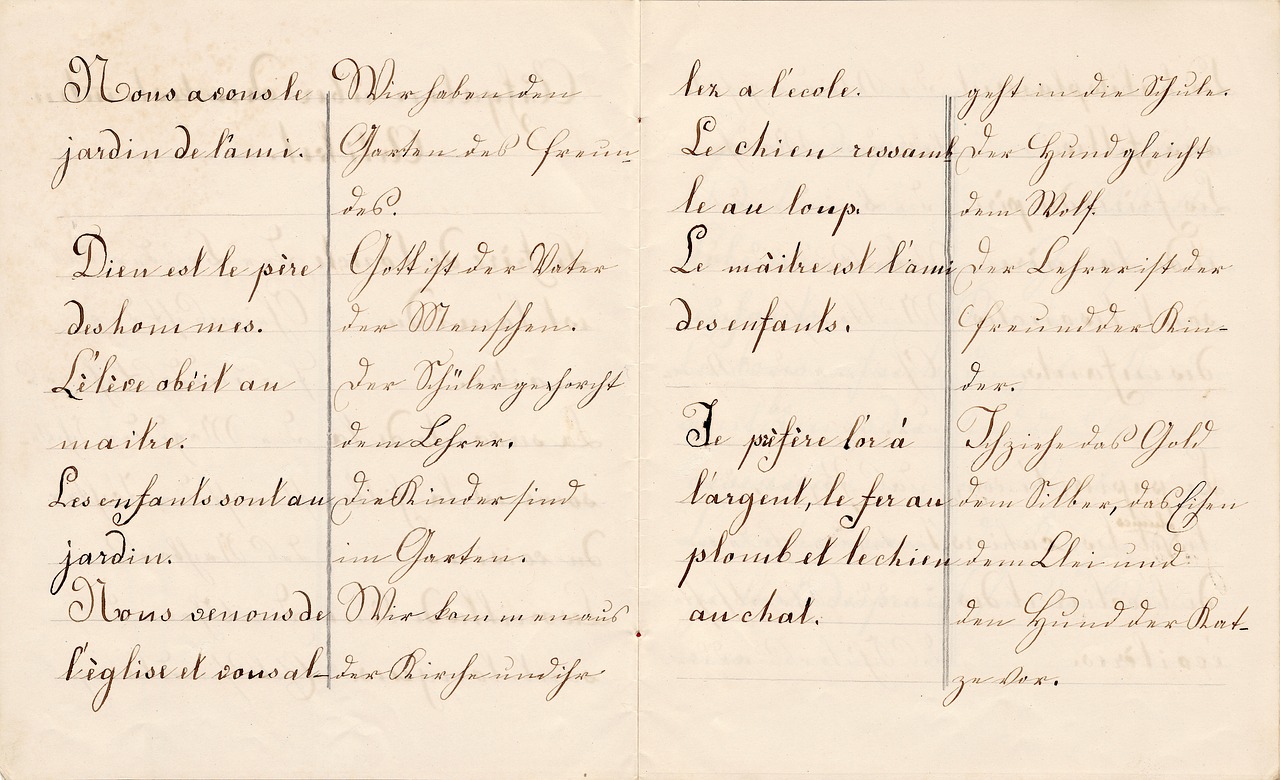 Nous avons le
jardin de l'ami.
Dieu est le père
des hommes.
L'élève obéit au
maitre.
Les enfants sont au
jardin.
Nous venons de
l'église et vous al-
Wir haben den
Garten des Freun-
des.
Gott ist der Vater
der Menschen.
Der Schüler gehorcht
dem Lehrer.
Die Kinder sind
im Garten.
Wir kommen aus
der Kirche und ihr
lez a l'ecole.
Le chien ressemb
le au loup.
Le màitre est l'ami
des enfants.
Je préfère l'or á
l'argent, le fer au
plomb et le chien
au chat.
geht in die Schule.
Der Hund gleicht
dem Wolf.
Der Lehrer ist der
Freund der Kin-
der.
Ich ziehe das Gold
dem Silber, das Eisen
dem Blei und
den Hund der Kat-
ze vor.